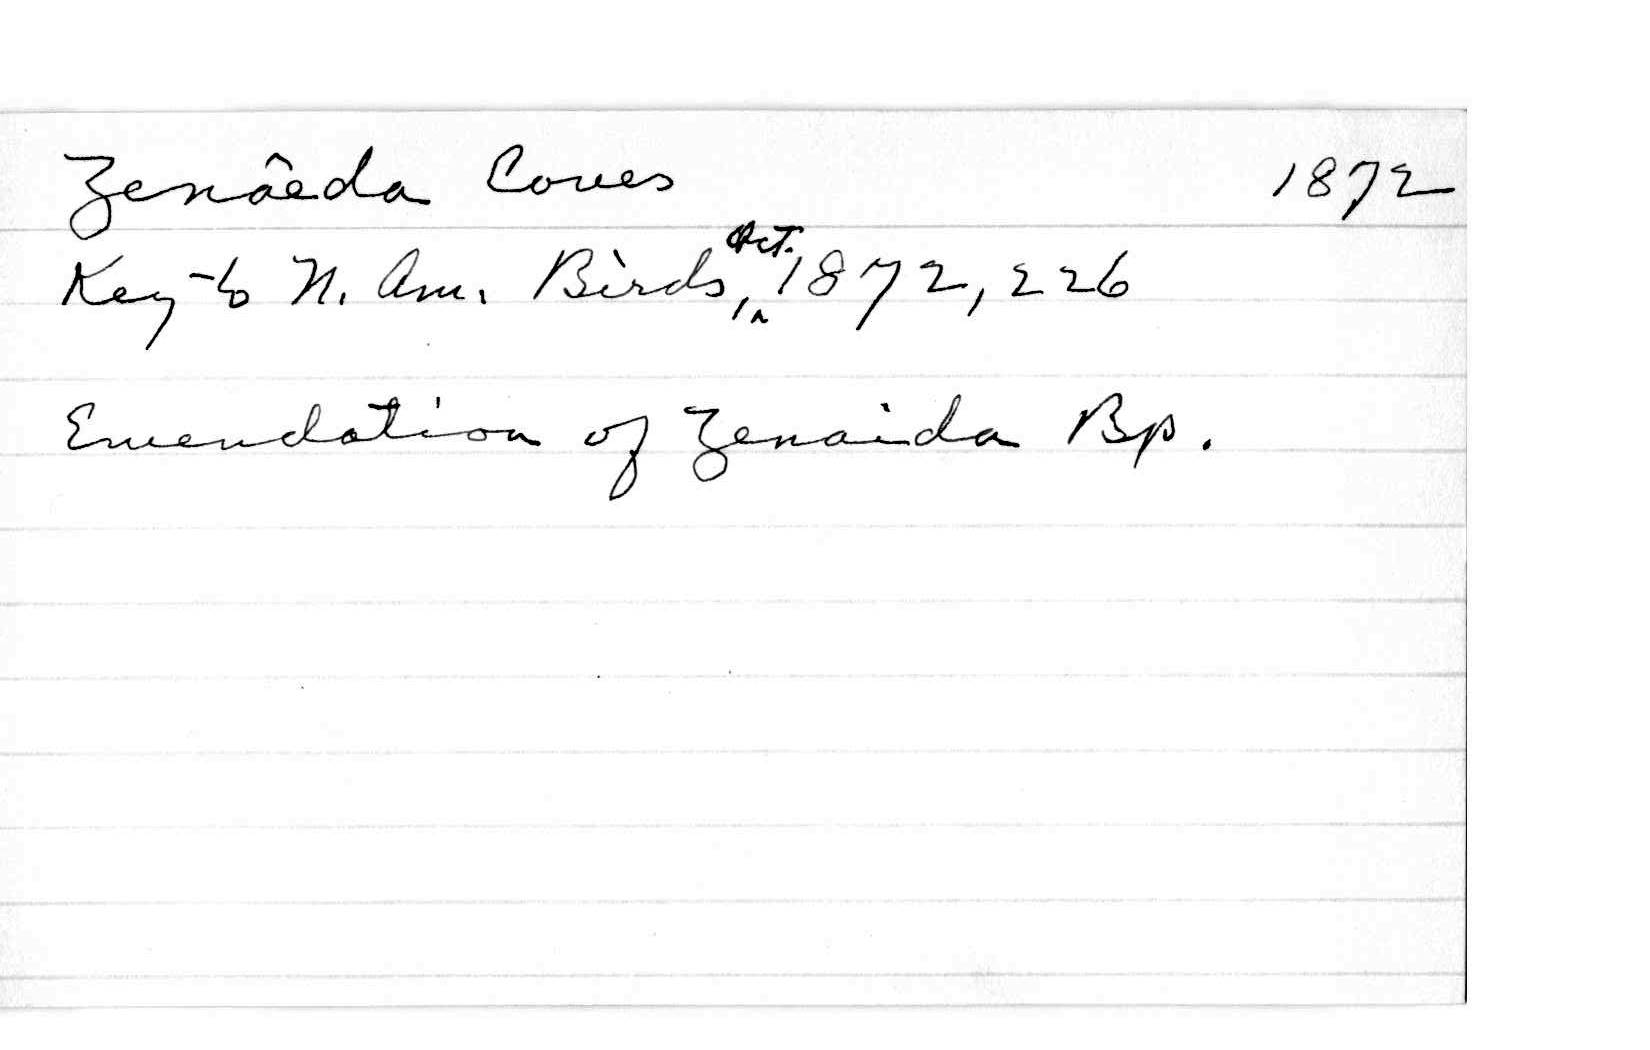 Zenâeda Coues 1872
Key to N. Am. Birds, Oct. 1872, 226
Emendation of Zenaida Bp.